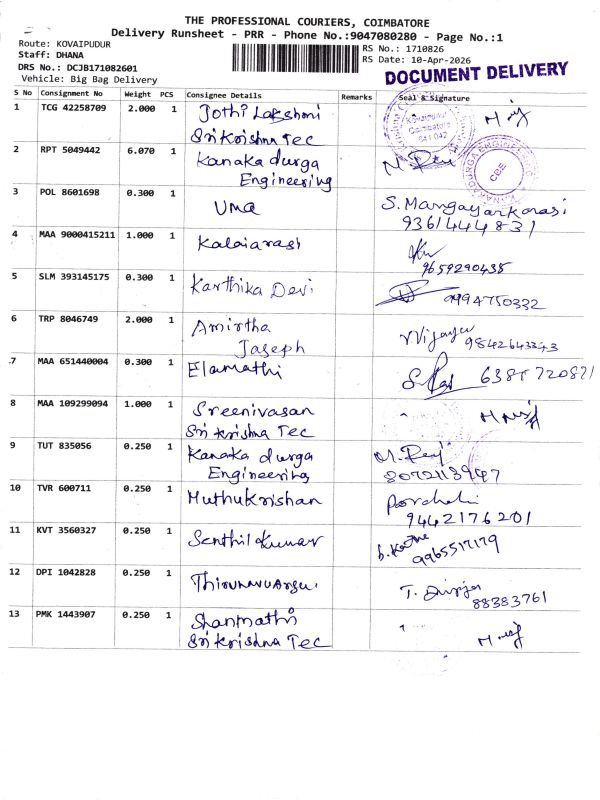 THE PROFESSIONAL COURIERS, COIMBATORE
Delivery Runsheet - PRR - Phone No.:9047080280 - Page No.:1
Route: KOVAIPUDUR
Staff: DHANA
DRS No.: DCJB171082601
Vehicle: Big Bag Delivery
RS No.: 1710826
RS Date: 10-Apr-2026
DOCUMENT DELIVERY
S No Consignment No Weight PCS Consignee Details Remarks Seal & Signature
1 TCG 42258709 2.000 1 Jothi Lakshmi
Sri Krishna Tec
Kovaipudur
Coimbatore
641 042
2 RPT 5049442 6.070 1 Kanaka durga
Engineering
KANAKADURGA ENGINEERING
CBE
3 POL 8601698 0.300 1 Uma S. Mangayarkarasi
9361444831
4 MAA 9000415211 1.000 1 Kalaiarasi
9659290435
5 SLM 393145175 0.300 1 Karthika Devi 9994750332
6 TRP 8046749 2.000 1 Amirtha
Jaseph
7 MAA 651440004 0.300 1 Elamathi
8 MAA 109299094 1.000 1 Sreenivasan
Sri Krishna Tec
9 TUT 835056 0.250 1 Kanaka durga
Engineering
10 TVR 600711 0.250 1 Muthukrishan
9442176201
11 KVT 3560327 0.250 1 Senthil Kumar
9965517179
12 DPI 1042828 0.250 1
88383761
13 PMK 1443907 0.250 1 Shanmathi
Sri Krishna Tec